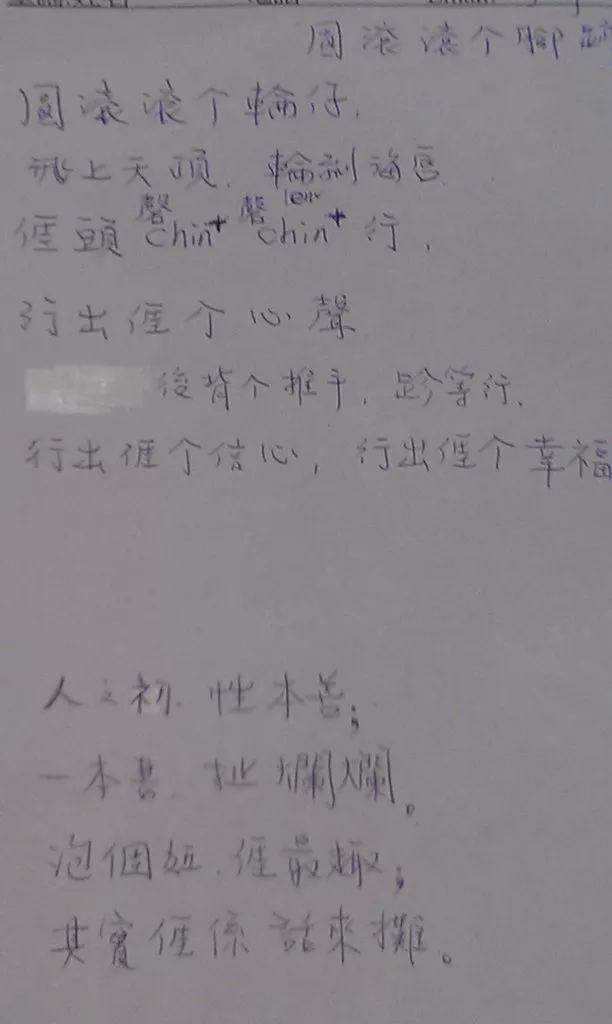 圓滾滾个腳
圓滾滾个輪仔,
飛上天頂. 輪到海唇
𠊎頭 chin⁺ chin⁺ 行,
行出𠊎个心聲
後背个推手, 跈等行.
行出𠊎个信心, 行出𠊎个幸福
人之初. 性本善;
一本書. 扯爛爛。
泡個妞. 𠊎最趣;
其實𠊎係話來攤。